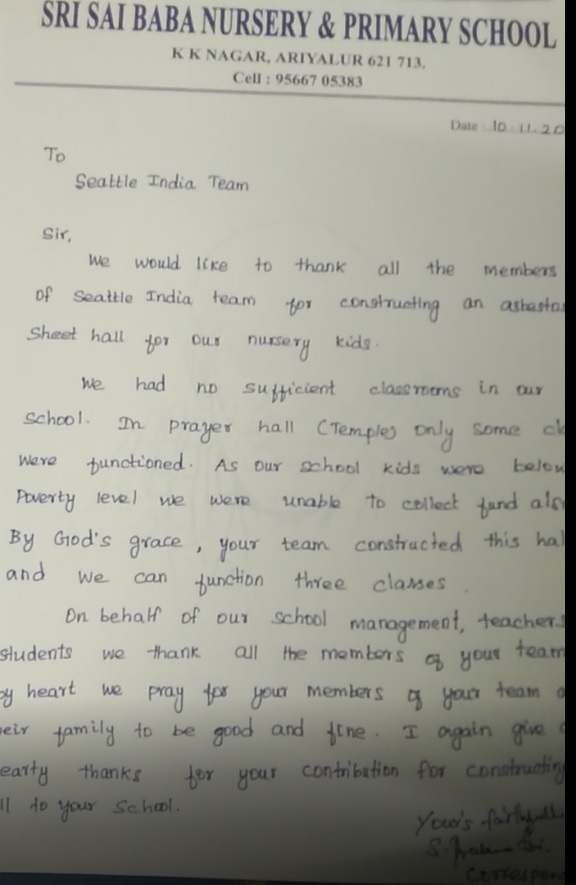 SRI SAI BABA NURSERY & PRIMARY SCHOOL
K K NAGAR, ARIYALUR 621 713.
Cell : 95667 05383
Date : 10.11.20
To
Seattle India Team
Sir,
We would like to thank all the members
of Seattle India team for constructing an asbastos
Sheet hall for our nursery kids.
We had no sufficient classrooms in our
school. In prayer hall (Temple) only some cl
were functioned. As our school kids were below
Poverty level we were unable to collect fund als
By God's grace, your team constructed this hal
and we can function three classes.
On behalf of our school management, teachers
students we thank all the members of your team
by heart we pray for your members of your team
eir family to be good and fine. I again give
earty thanks for your contribution for constructing
ll to your School.
Your's
S.
Correspon